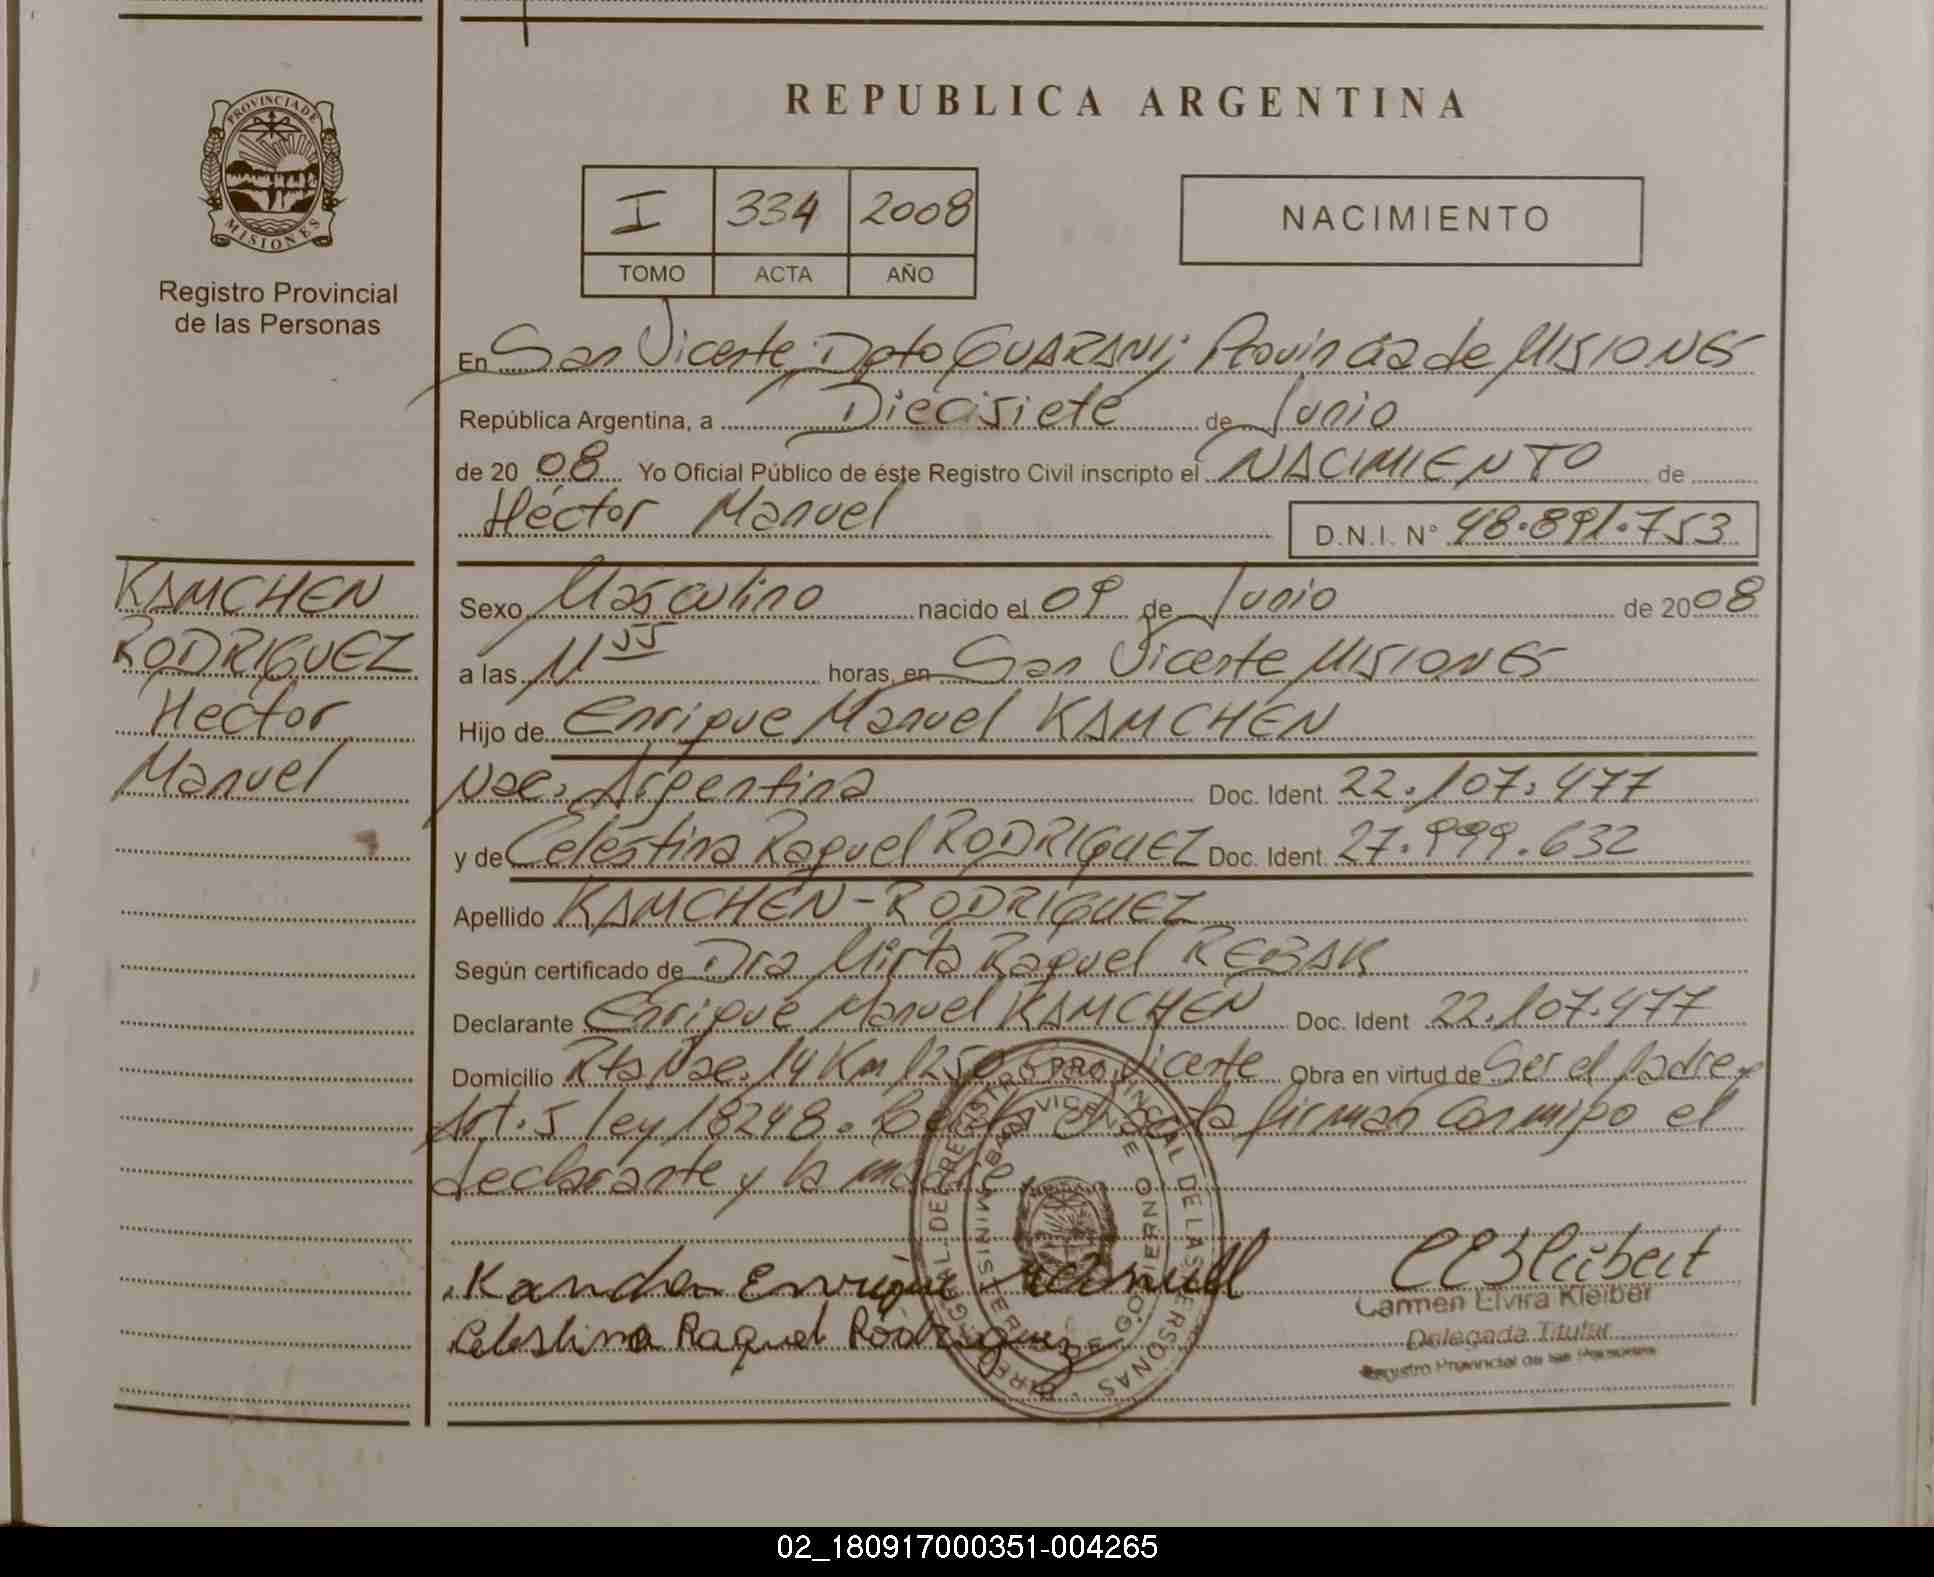 REPUBLICA ARGENTINA
PROVINCIA DE
MISIONES
Registro Provincial
de las Personas
I 334 2008
TOMO ACTA AÑO
NACIMIENTO
En San Vicente Dpto GUARANI; Provincia de MISIONES
República Argentina, a Diecisiete de Junio
de 20 08 Yo Oficial Público de éste Registro Civil inscripto el NACIMIENTO de
Héctor Manuel D.N.I. N° 48.891.753
KAMCHEN
RODRIGUEZ
Hector
Manuel
Sexo Masculino nacido el 09 de Junio de 2008
a las 11 55 horas, en San Vicente MISIONES
Hijo de Enrique Manuel KAMCHEN
Nac. Argentina Doc. Ident. 22.107.477
y de Celestina Raquel RODRIGUEZ Doc. Ident. 27.999.632
Apellido KAMCHEN-RODRIGUEZ
Según certificado de Dra Mirta Raquel REBAK
Declarante Enrique Manuel KAMCHEN Doc. Ident 22.107.477
Domicilio Rta Nac. 14 Km 1250 Vicente Obra en virtud de Ser el padre
Art. 5 ley 18248. firman conmigo el
declarante y la madre
Enrique Manuel
Celestina Raquel Rodriguez
Carmen Elvira Kleiber
Delegada Titular
Registro Provincial de las Personas
02_180917000351-004265